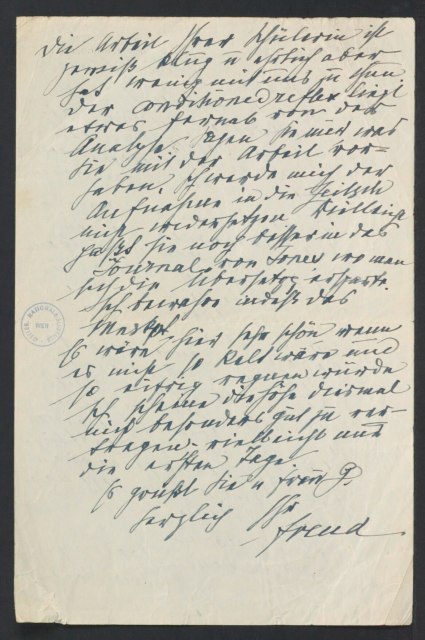 Die Arbeit Ihrer Schülerin ist
gewiß klug u ehrlich aber
hat wenig mit uns zu thun.
Der conditioned reflex liegt
etwas fernab von der
Analyse. Sagen Sie mir was
Sie mit der Arbeit vor-
haben. Ich werde mich der
Aufnahme in die Zeitsch
nicht widersetzen. Vielleicht
paßt sie noch besser in das
Journal von Jones wo man
sich die Übersetzg erspart.
Ich bewahre indeß das
Mskpt.
Es wäre hier sehr schön wenn
es nicht so kalt wäre und
so eifrig regnen würde
Ich scheine die Höhe diesmal
nicht besonders gut zu ver-
tragen – vielleicht nur
die ersten Tage.
Es grüßt Sie u Frau G.
herzlich Ihr
Freud
WIEN